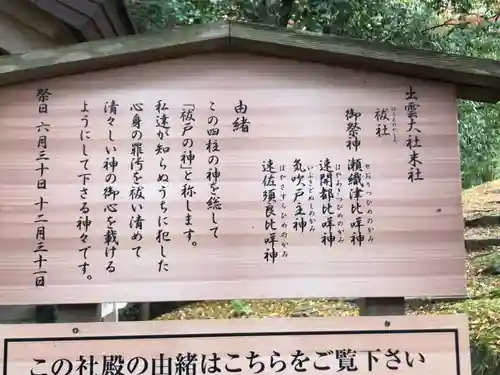 出雲大社末社
祓社
はらえのやしろ
御祭神
瀬織津比咩神
せおりつひめのかみ
速開都比咩神
はやあきつひめのかみ
気吹戸主神
いぶきどぬしのかみ
速佐須良比咩神
はやさすらひめのかみ
由緒
この四柱の神を総して
「祓戸の神」と称します。
私達が知らぬうちに犯した
心身の罪汚を祓い清めて
清々しい神の御心を戴ける
ようにして下さる神々です。
祭日 六月三十日 十二月三十一日
この社殿の由緒はこちらをご覧下さい